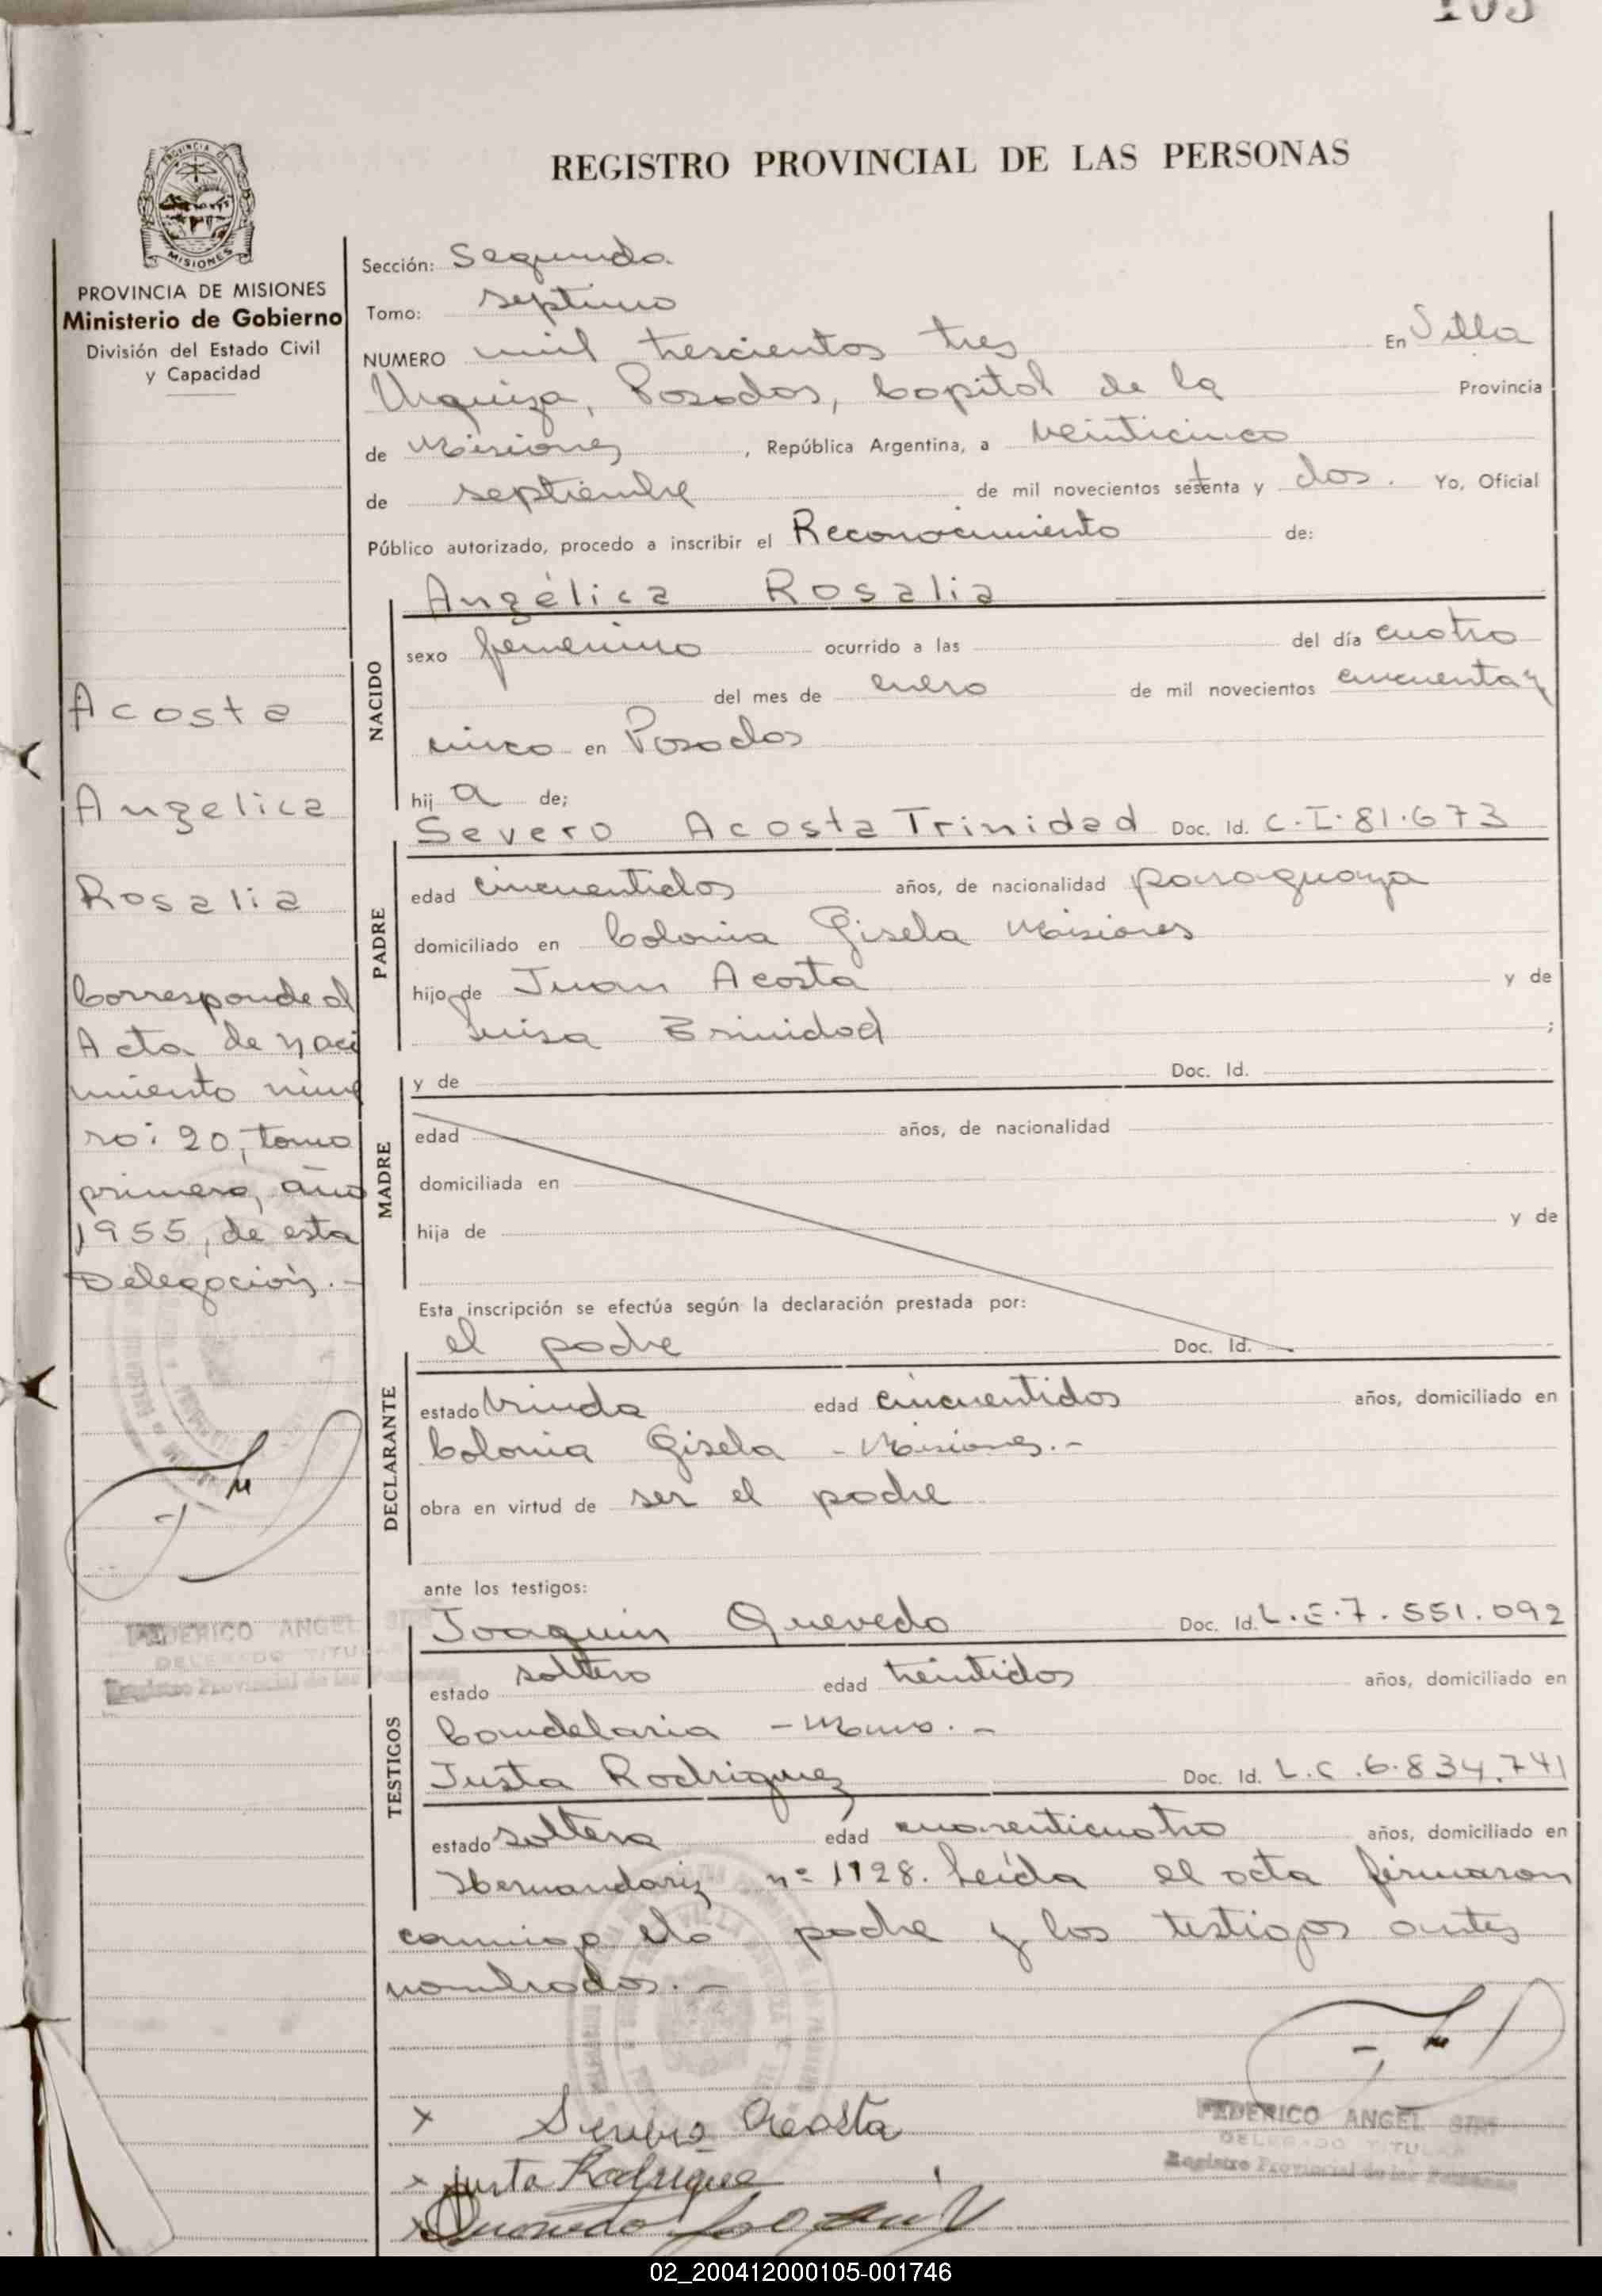 REGISTRO PROVINCIAL DE LAS PERSONAS
PROVINCIA DE MISIONES
Ministerio de Gobierno
División del Estado Civil
y Capacidad
Acosta
Angelica
Rosalia
Corresponde al
Acta de naci
miento núme
ro: 20, tomo
primero, año
1955, de esta
Delegación.-
FEDERICO ANGEL
DELEGADO TITULAR
Registro Provincial de las Personas
Sección: Segunda
Tomo: septimo
NUMERO mil trescientos tres En Villa
Urquiza, Posadas, Capital de la Provincia
de Misiones, República Argentina, a veinticinco
de septiembre de mil novecientos setenta y dos. Yo, Oficial
Público autorizado, procedo a inscribir el Reconocimiento de:
NACIDO
Angélica Rosalia
sexo femenino ocurrido a las del día cuatro
del mes de enero de mil novecientos cincuenta y
cinco en Posadas
hij a de;
PADRE
Severo Acosta Trinidad Doc. Id. C.I.81.673
edad cincuentidos años, de nacionalidad paraguaya
domiciliado en Colonia Gisela Misiones
hijo de Juan Acosta y de
Luisa Trinidad ;
MADRE
y de Doc. Id.
edad años, de nacionalidad
domiciliada en
hija de y de
Esta inscripción se efectúa según la declaración prestada por:
DECLARANTE
el padre Doc. Id.
estado viuda edad cincuentidos años, domiciliado en
Colonia Gisela - Misiones.-
obra en virtud de ser el padre
ante los testigos:
TESTIGOS
Joaquin Quevedo Doc. Id. L.E.7.551.092
estado soltero edad treintidos años, domiciliado en
Candelaria - Mnes.-
Justa Rodriguez Doc. Id. L.C.6.834.741
estado soltera edad cuarenticuatro años, domiciliado en
Hernandariz nº 1128. Leída el acta firmaron
conmigo el padre y los testigos antes
nombrados.-
x Acosta
x justa Rodrigue
x Quevedo Joaquin
FEDERICO ANGEL
DELEGADO TITULAR
Registro Provincial de las Personas
02_200412000105-001746